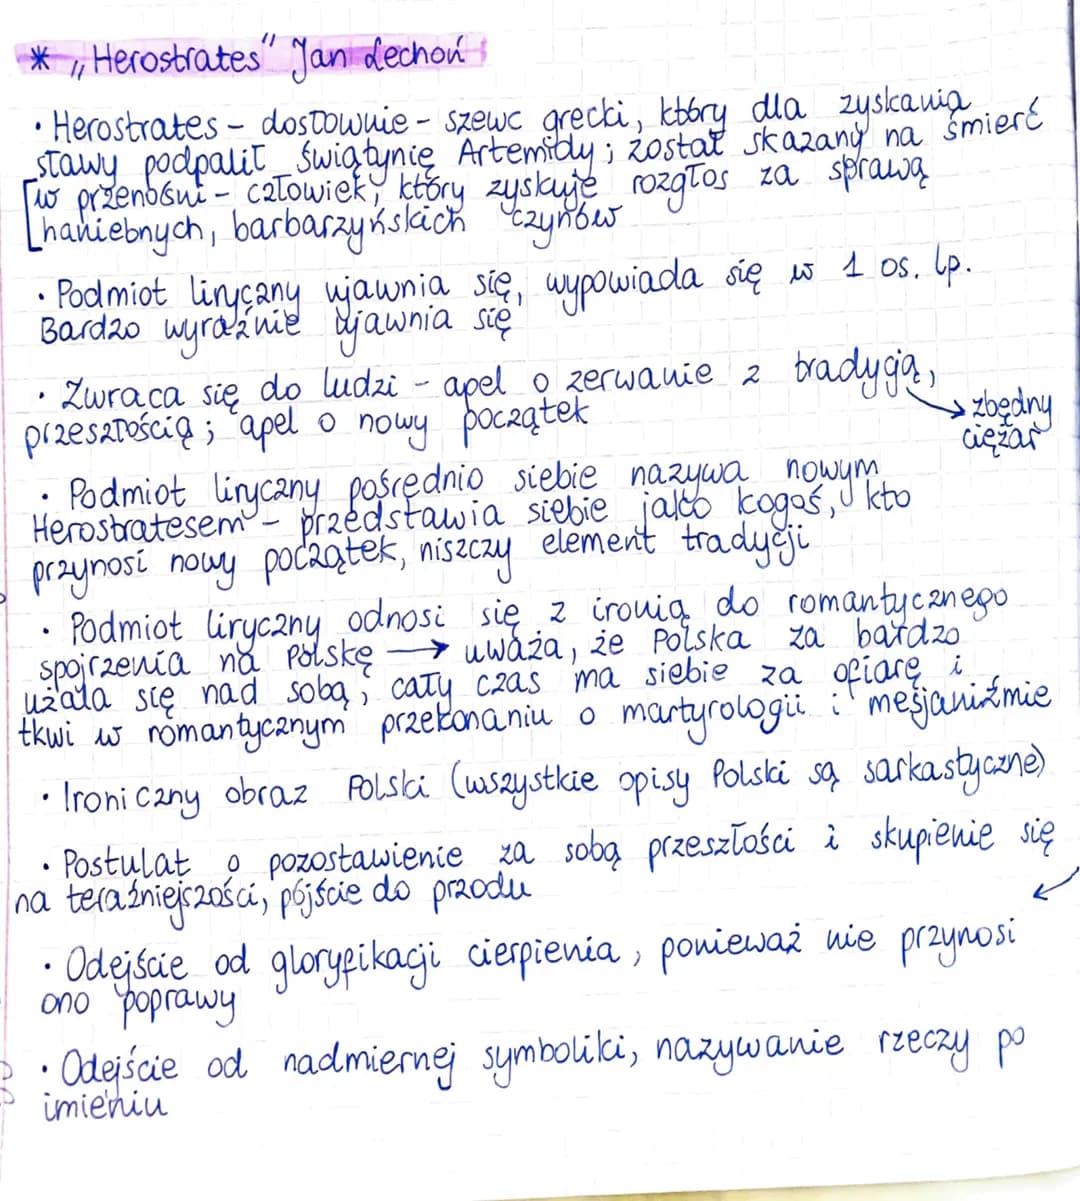 * „Herostrates" Jan Lechoń
• Herostrates – dosłownie – szewc grecki, który dla zyskania
sławy podpalił świątynię Artemidy; został skazany na śmierć
[w przenośni – człowiek, który zyskuje rozgłos za sprawą
haniebnych, barbarzyńskich czynów
• Podmiot liryczny ujawnia się, wypowiada się w 1 os. lp.
Bardzo wyraźnie ujawnia się
• Zwraca się do ludzi – apel o zerwanie z tradycją,
przeszłością; apel o nowy początek
→ zbędny
ciężar
• Podmiot liryczny pośrednio siebie nazywa nowym
Herostratesem – przedstawia siebie jako kogoś, kto
przynosi nowy początek, niszczy element tradycji
• Podmiot liryczny odnosi się z ironią do romantycznego
spojrzenia na Polskę → uważa, że Polska za bardzo
użala się nad sobą, cały czas ma siebie za ofiarę i
tkwi w romantycznym przekonaniu o martyrologii i mesjaniźmie
• Ironiczny obraz Polski (wszystkie opisy Polski są sarkastyczne)
• Postulat o pozostawienie za sobą przeszłości i skupienie się
na teraźniejszości, pójście do przodu
• Odejście od gloryfikacji cierpienia, ponieważ nie przynosi
ono poprawy
• Odejście od nadmiernej symboliki, nazywanie rzeczy po
imieniu